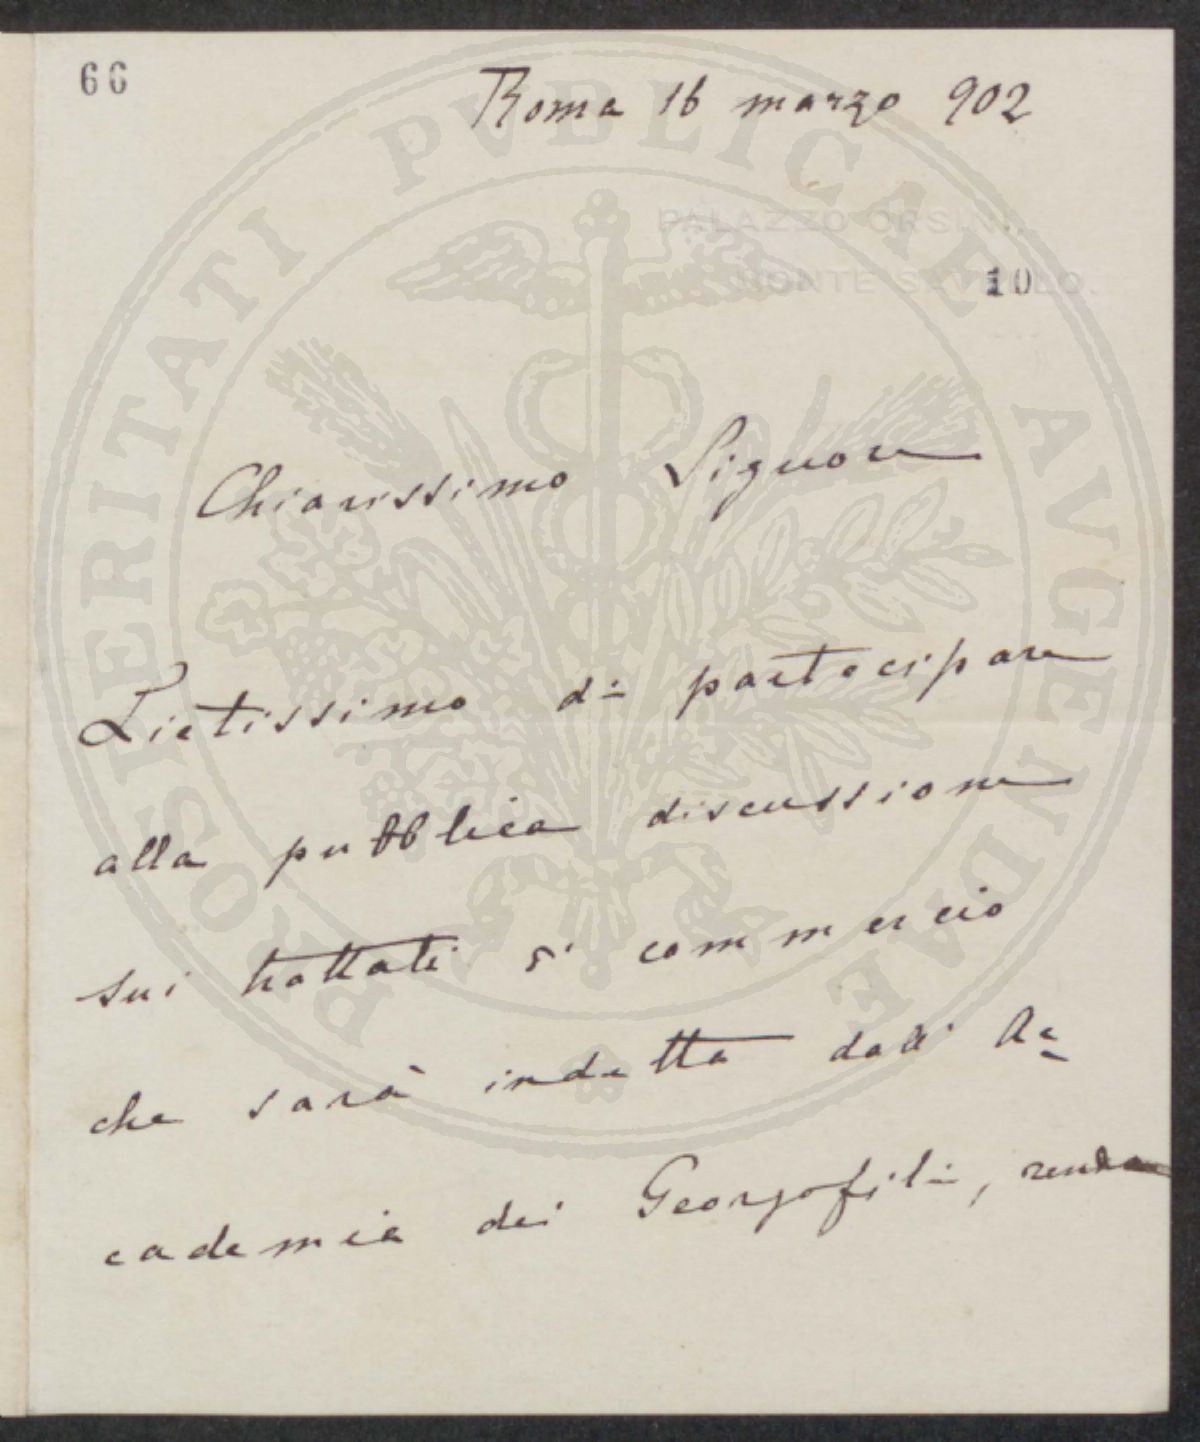 66
Roma 16 marzo 902
PALAZZO ORSINI
MONTE SAVELLO.
10
Chiarissimo Signore
Lietissimo di partecipare
alla pubblica discussione
sui trattati di commercio
che sarà indetta dall' Ac=
cademia dei Georgofili, rendo
PROSPERITATI PVBLICAE AVGENDAE